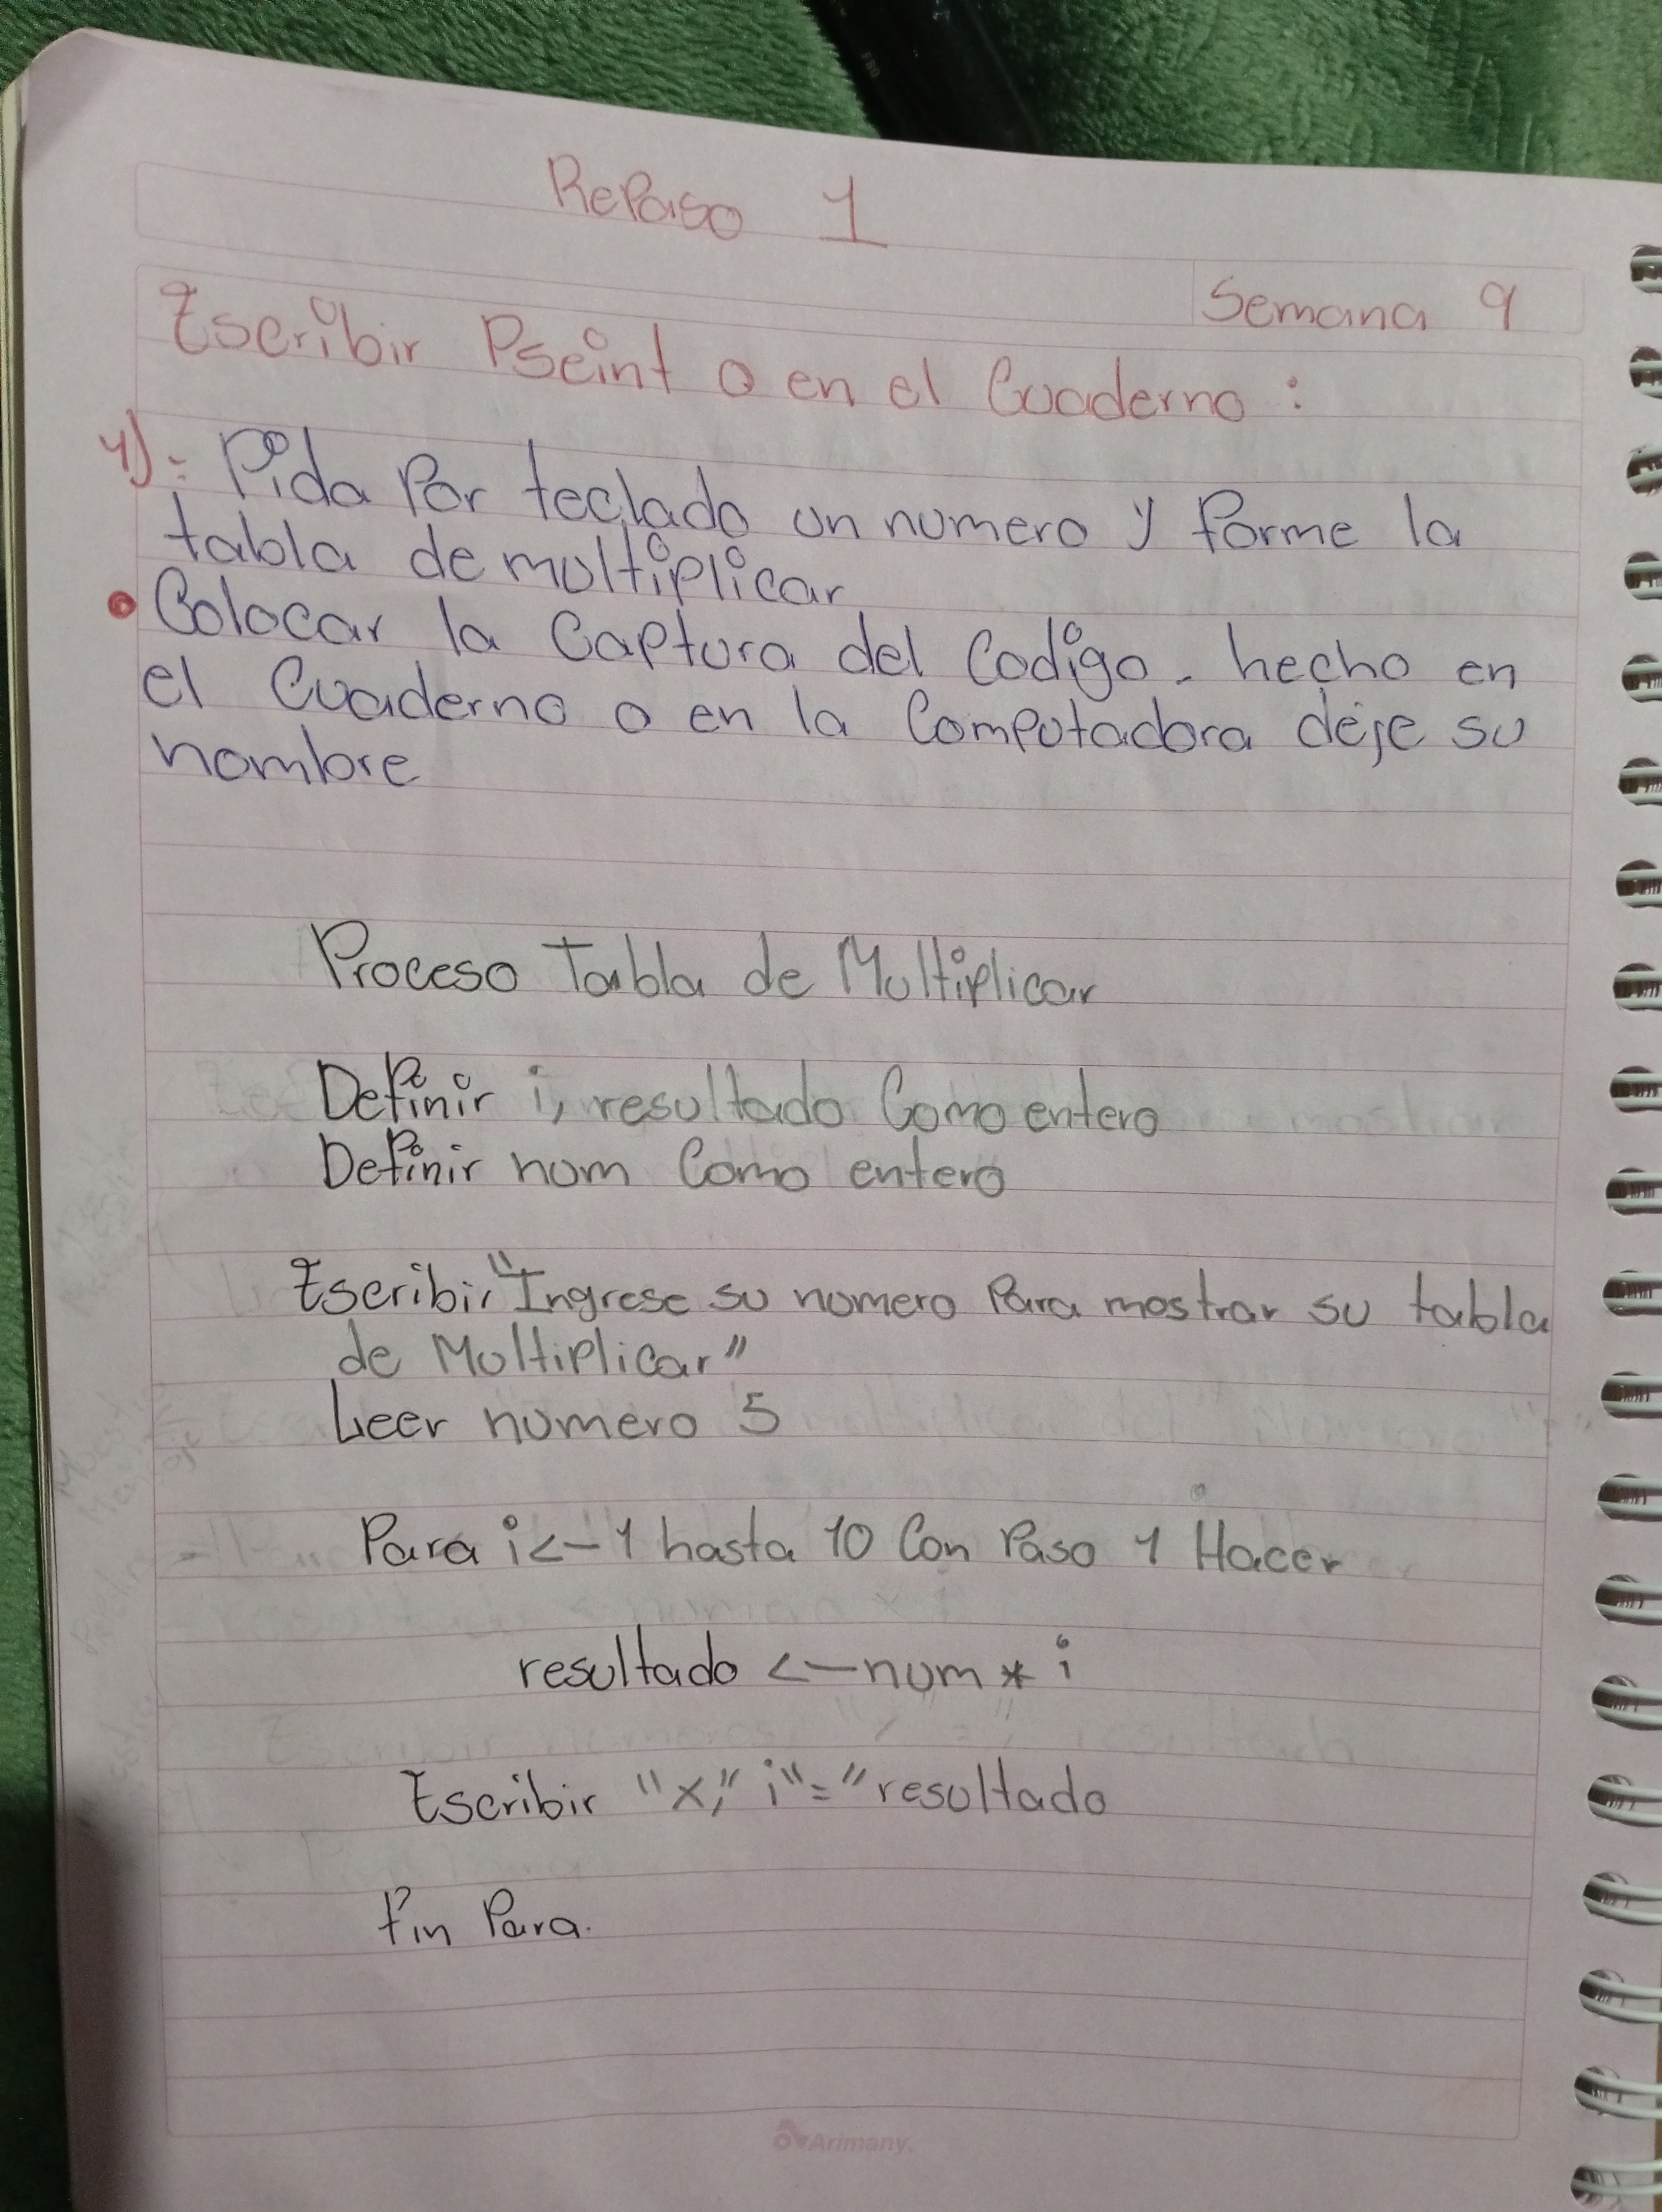 Repaso 1
Semana 9
Escribir Pseint o en el Cuaderno :
1)- Pida Por teclado un numero y forme la
tabla de multiplicar
• Colocar la Captura del Codigo - hecho en
el Cuaderno o en la Computadora deje su
nombre
Proceso Tabla de Multiplicar
Definir i, resultado Como entero
Definir num Como entero
Escribir "Ingrese su numero Para mostrar su tabla
de Multiplicar"
Leer numero 5
Para i <- 1 hasta 10 Con Paso 1 Hacer
resultado <- num * i
Escribir "x," i "=" resultado
Fin Para.
Arimany.